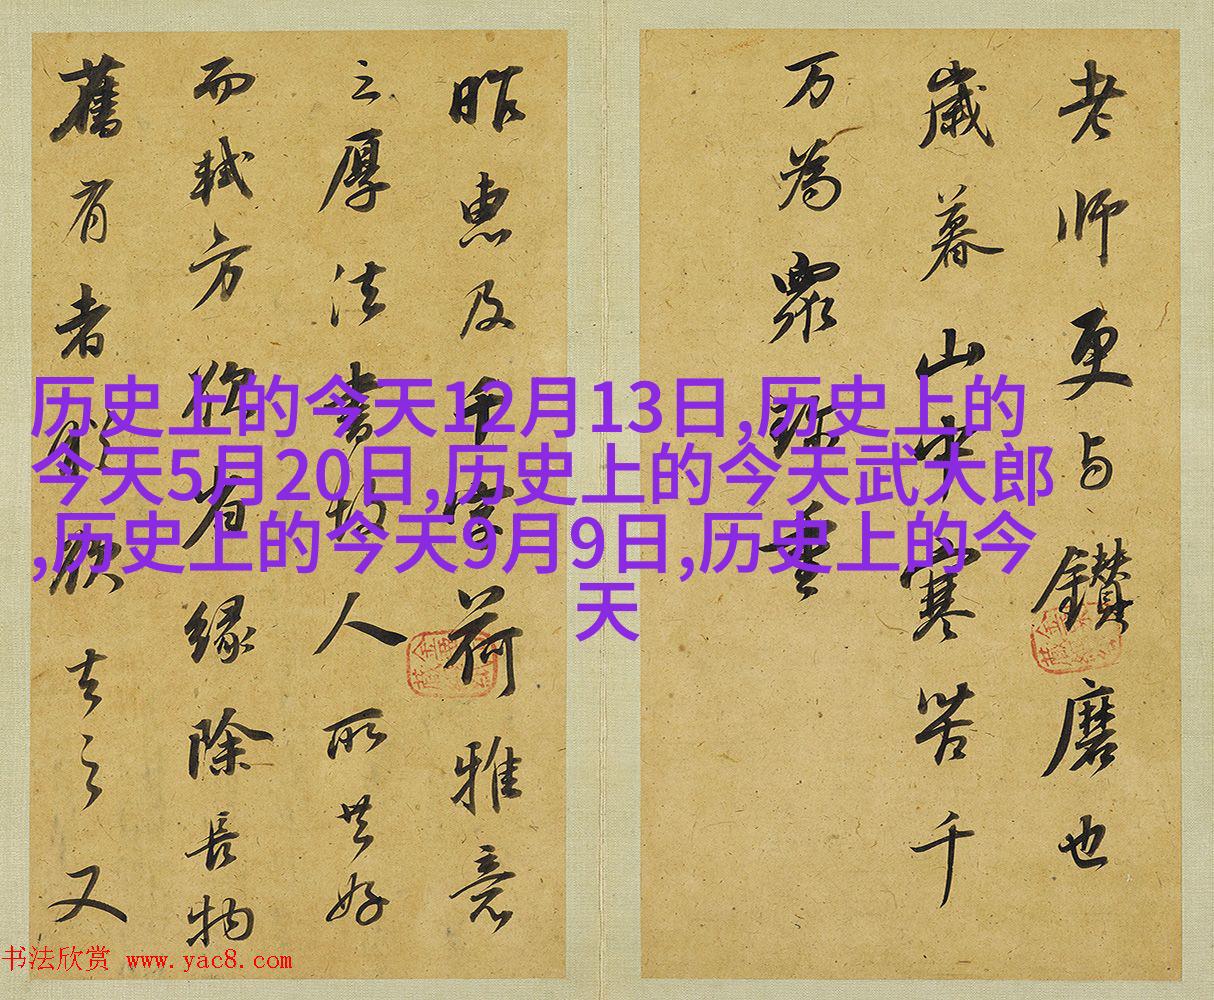 历史上的今天12月13日,历史上的
今天5月20日,历史上的今天武大郎
,历史上的今天9月9日,历史上的今
天
老師更与鑚磨也
歲暮山中寒苦千
万為眾珎重
昨惠及千字荷雅意
之厚法書故人所共好
而軾方欲省緣除長物
舊有者猶欲去之又
书法欣赏 www.yac8.com